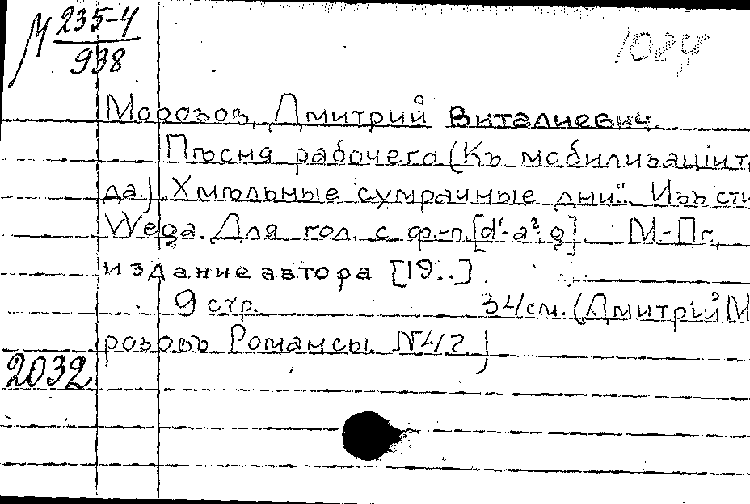 М 235-4
938
1084
Морозов, Дмитрий Виталиевич.
Пѣсня рабочего (Къ мобилизаціи т
да). Хмѣльные сумрачные дни". Изъ сти
Wega. Для гол. с ф.-п. [d¹-a², g]. М-Пг,
издание автора [19..]
9 стр. 34 см. (Дмитрій М
розовъ Романсы. N42)
2032